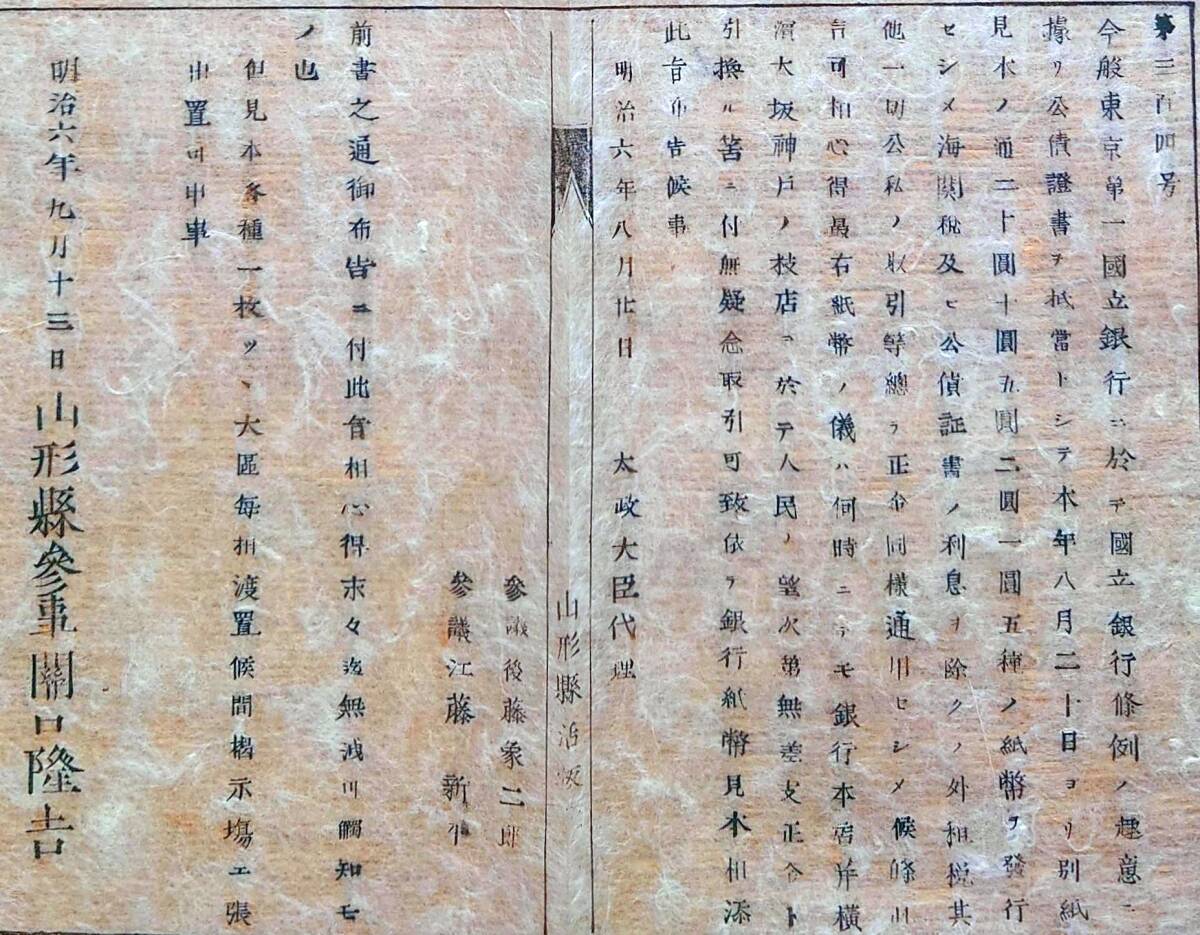 第三百四号
今般東京第一國立銀行ニ於テ國立銀行條例ノ趣意ニ
據リ公債證書ヲ抵當トシテ本年八月二十日ヨリ別紙
見本ノ通二十圓十圓五圓二圓一圓五種ノ紙幣ヲ發行
セシメ海關税及ヒ公債証書ノ利息ヲ除クノ外租税其
他一切公私ノ取引等總テ正金同様通用セシメ候條此
旨可相心得最右紙幣ノ儀ハ何時ニテモ銀行本店并横
濱大坂神戸ノ枝店ニ於テ人民ノ望次第無差支正金ト
引換ル筈ニ付無疑念取引可致依テ銀行紙幣見本相添
此旨布告候事
明治六年八月廿日 太政大臣代理
參議後藤象二郎
參議江藤 新平
山形縣治版
前書之通御布告ニ付此旨相心得末々迄無洩可觸知モ
ノ也
但見本各種一枚ツヽ大區毎相渡置候間揭示塲エ張
出置可申事
明治六年九月十三日 山形縣參事關口隆吉